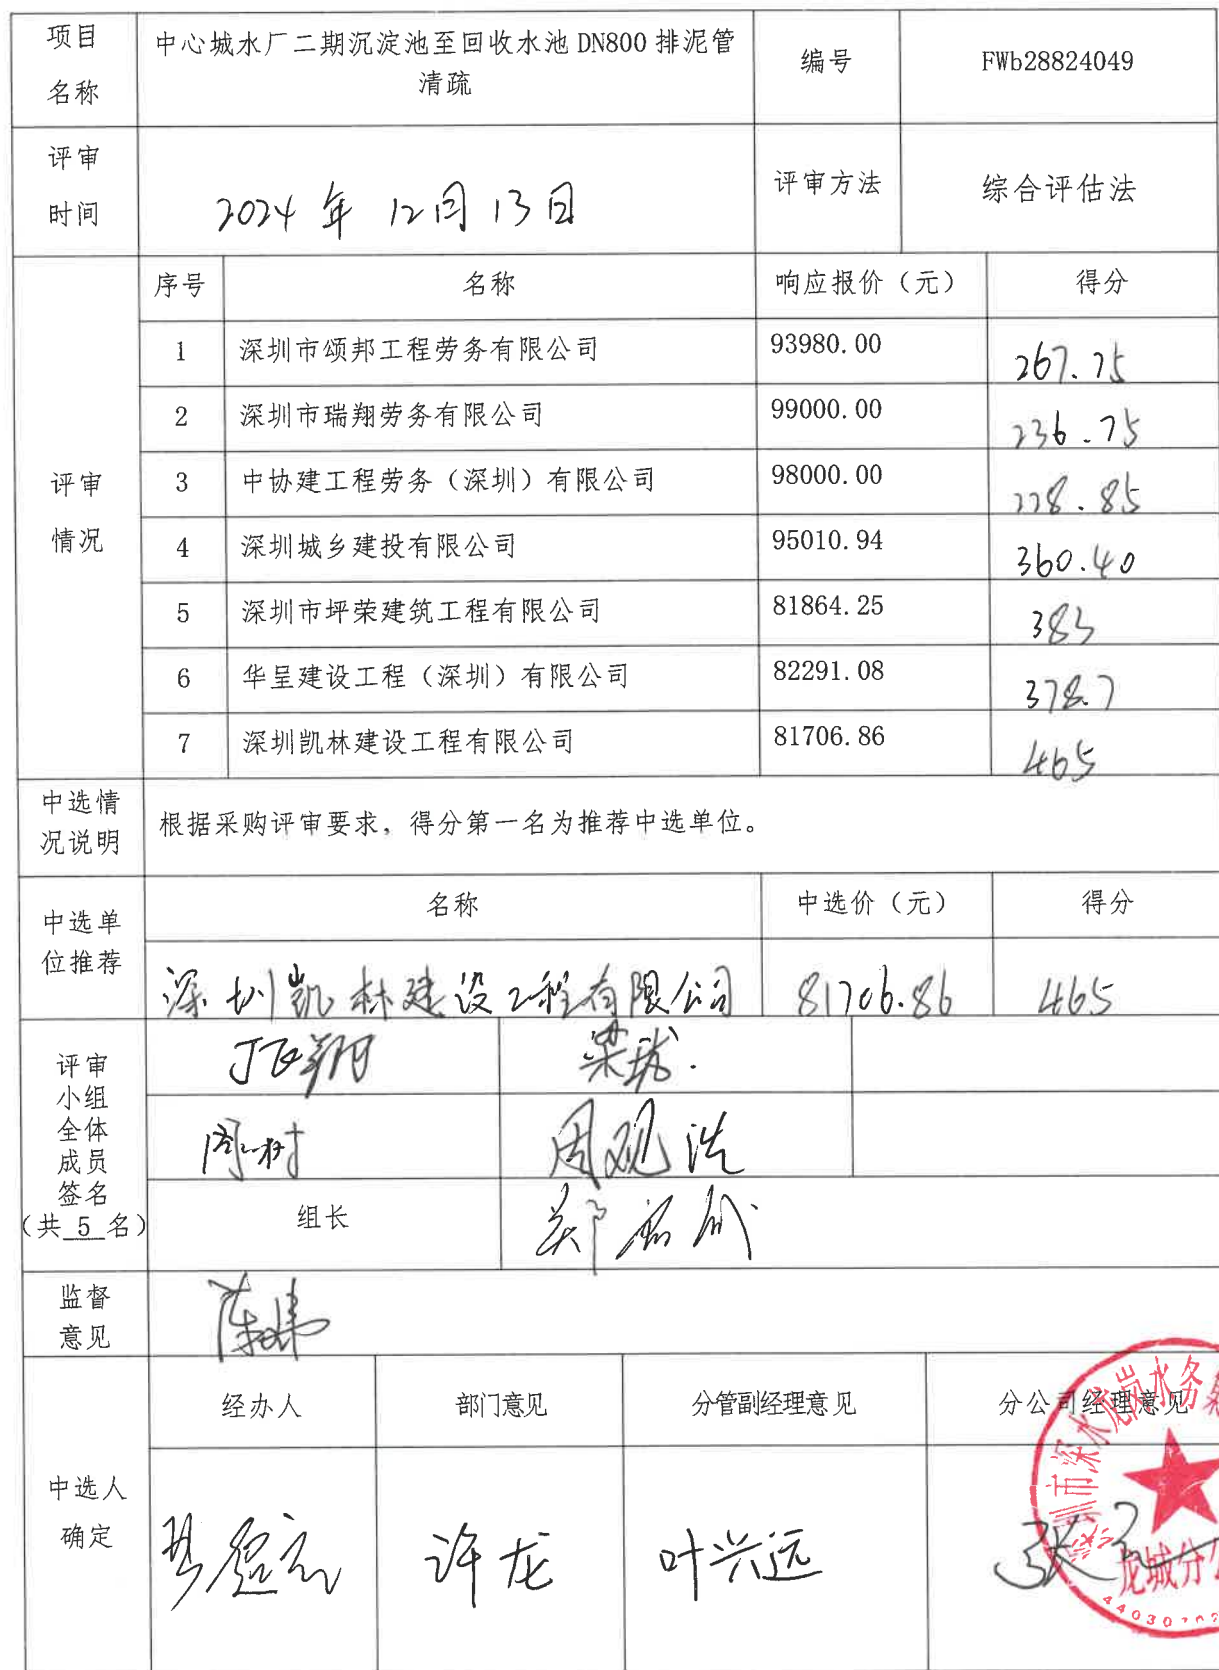 项目
名称
中心城水厂二期沉淀池至回收水池 DN800 排泥管
清疏
编号
FWb28824049
评审
时间
2024 年 12月 13日
评审方法
综合评估法
评审
情况
序号 名称 响应报价（元） 得分
1 深圳市颂邦工程劳务有限公司 93980.00 267.75
2 深圳市瑞翔劳务有限公司 99000.00 236.75
3 中协建工程劳务（深圳）有限公司 98000.00 228.85
4 深圳城乡建投有限公司 95010.94 360.40
5 深圳市坪荣建筑工程有限公司 81864.25 383
6 华呈建设工程（深圳）有限公司 82291.08 378.7
7 深圳凯林建设工程有限公司 81706.86 465
中选情
况说明
根据采购评审要求，得分第一名为推荐中选单位。
中选单
位推荐
名称 中选价（元） 得分
深圳凯林建设工程有限公司 81706.86 465
评审
小组
全体
成员
签名
（共 5 名）
周观浩
组长
监督
意见
中选人
确定
经办人 部门意见 分管副经理意见 分公司经理意见
许龙 叶兴远
圳市深水龙岗水务集
龙城分公